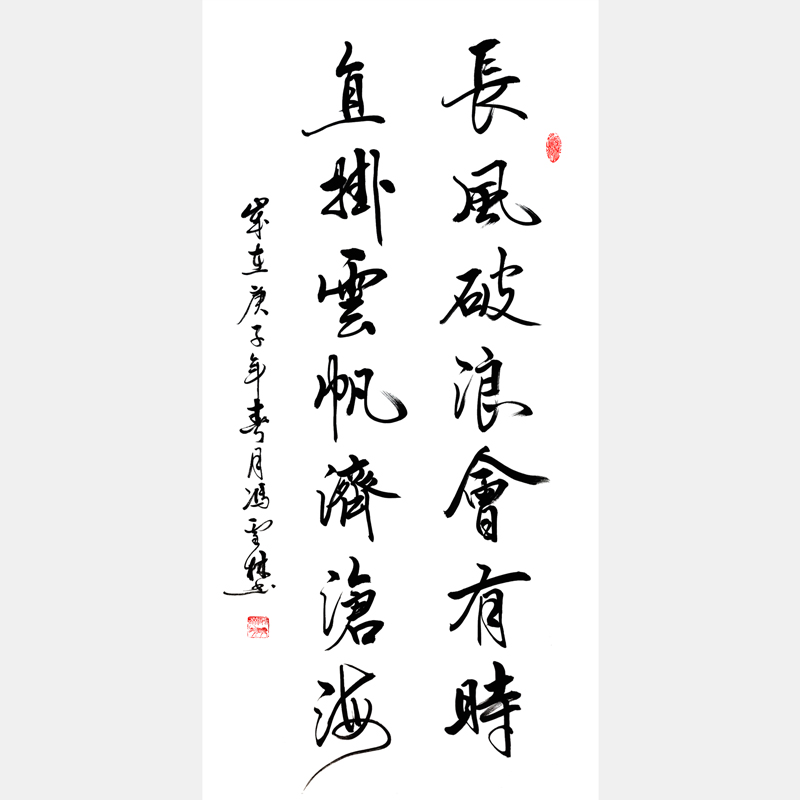 長風破浪會有時
直掛雲帆濟滄海
歲在庚子年春月馮雪林书